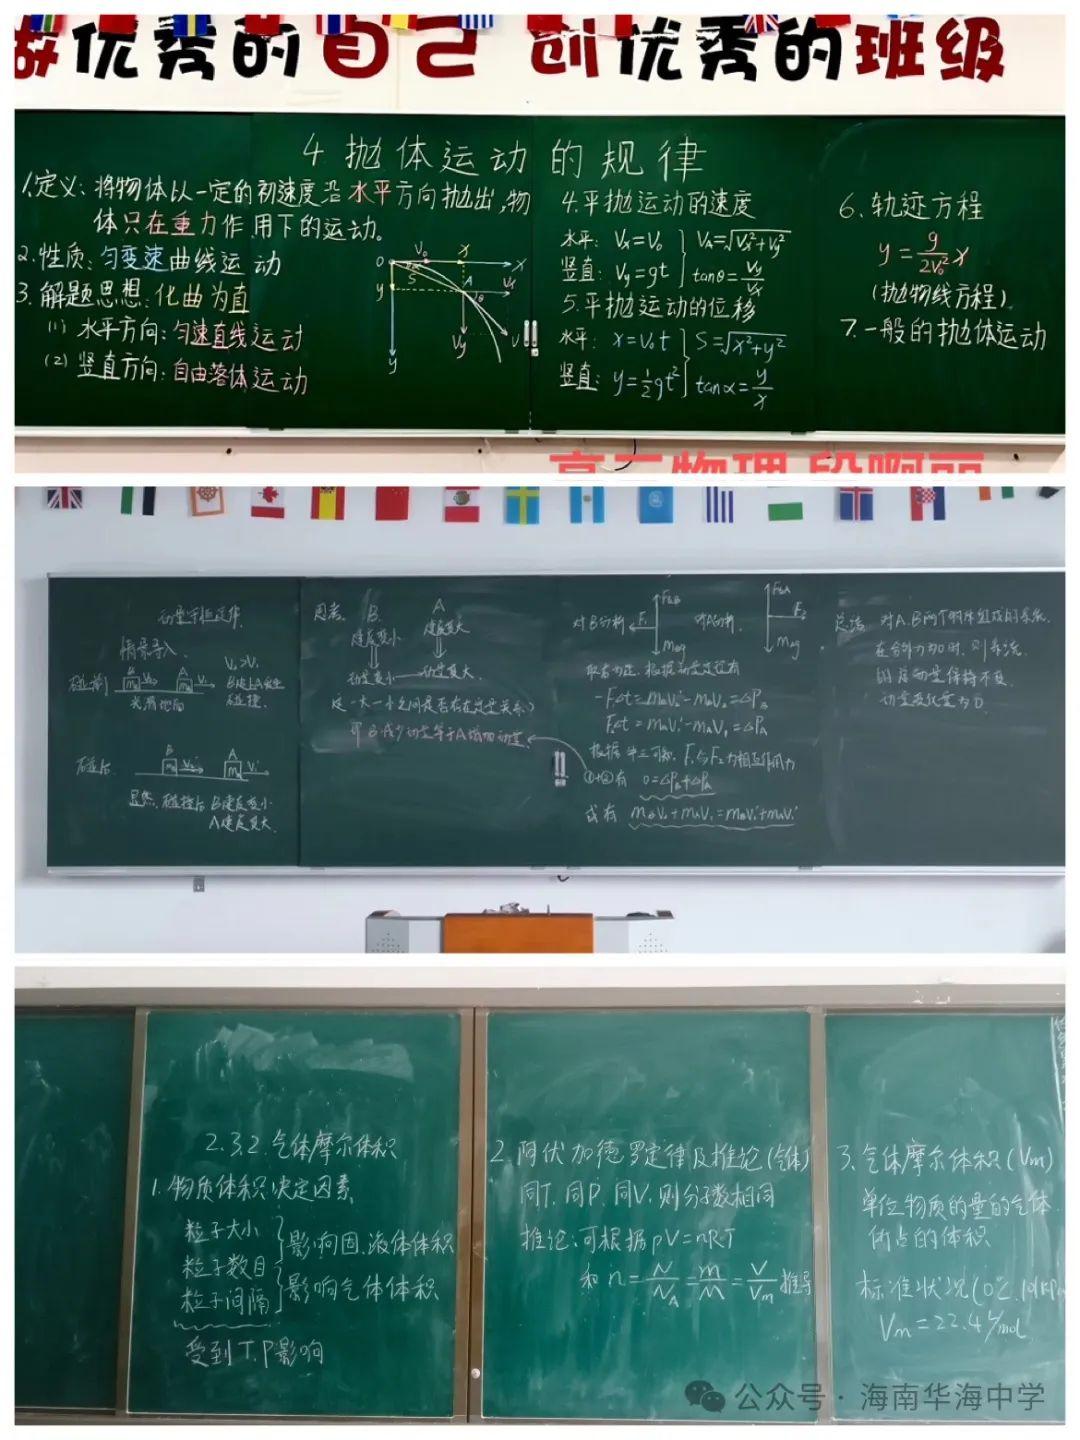 优秀的自己 创优秀的班级
4.抛体运动的规律
1.定义:将物体以一定的初速度沿水平方向抛出,物
体只在重力作用下的运动。
2.性质:匀变速曲线运动
3.解题思想:化曲为直
(1) 水平方向:匀速直线运动
(2) 竖直方向:自由落体运动
O V₀ x X
y S A θ Vx
Vy V
y
4.平抛运动的速度
水平: Vx=V₀ } V_A=√(Vx²+Vy²)
竖直: Vy=gt } tanθ=Vy/Vx
5.平抛运动的位移
水平: x=V₀t } S=√(x²+y²)
竖直: y=½gt² } tanα=y/x
6.轨迹方程
y=g/(2V₀²)x
(抛物线方程)
7.一般的抛体运动
动量守恒定律
情景导入
碰撞前 B A V₀>V₁
B与A发生
碰撞.
光滑地面
碰后 B A
显然,碰撞后 B速度变小
A速度变大
思考: B A
速度变小 速度变大
动量变小 动量变大
这一大一小之间是否存在定量关系?
即B减少动量等于A增加动量
对B分析 F₁ 对A分析 F₂
取右为正,根据动量定理有
根据牛三可知, F₁与F₂为相互作用力
①+②有 0=ΔP_B+ΔP_A
或有
总结 对A.B两个物体组成的系统
在合外力为0时,则系统
的总动量保持不变
动量变化量为0
2.3.2.气体摩尔体积
1.物质体积决定因素
粒子大小
粒子数目 } 影响固.液体体积
粒子间隔 } 影响气体体积
受到T.P影响
2.阿伏加德罗定律及推论(气体)
同T.同P.同V.则分子数相同
推论:可根据pV=nRT
和n=N/N_A=m/M=V/Vm推导
3.气体摩尔体积(Vm)
单位物质的量的气体
所占的体积
标准状况(0℃.101kPa
Vm=22.4L/mol
公众号·海南华海中学